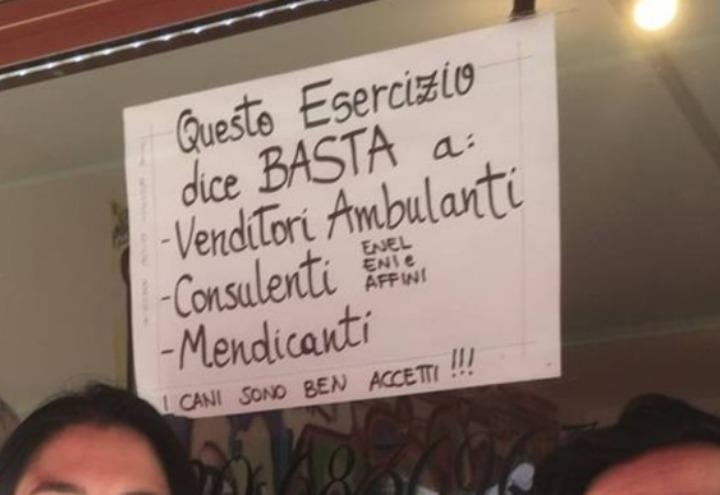 Questo Esercizio
dice BASTA a:
-Venditori Ambulanti
-Consulenti ENEL
ENI e
AFFINI
-Mendicanti
I CANI SONO BEN ACCETTI !!!